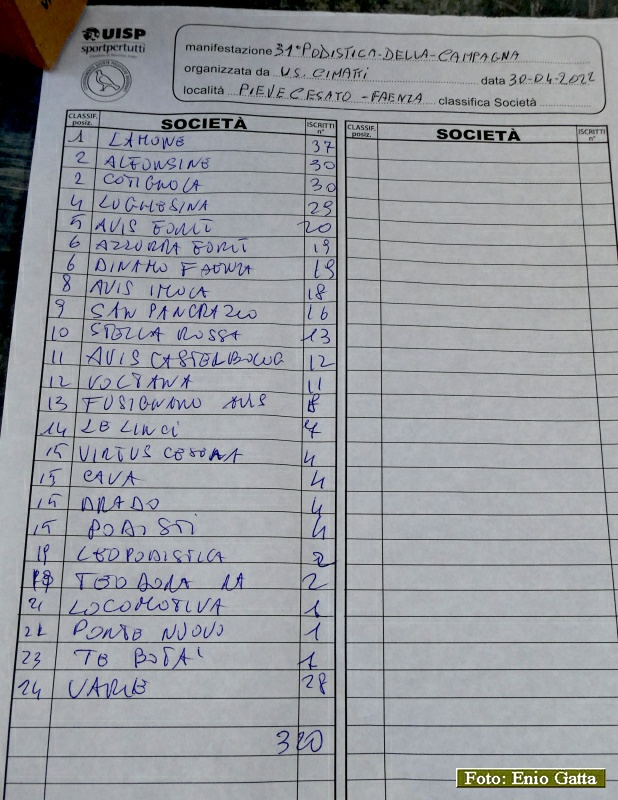 UISP
sportpertutti
manifestazione 31ª PODISTICA-DELLA-CAMPAGNA
organizzata da U.S. CIMATTI data 30-04-2022
località PIEVE CESATO - FAENZA classifica Società
CLASSIF. posiz. SOCIETÀ ISCRITTI n° CLASSIF. posiz. SOCIETÀ ISCRITTI n°
1 LAMONE 37
2 ALFONSINE 30
2 COTIGNOLA 30
4 LUGHESINA 29
5 AVIS FORLÌ 20
6 AZZURRA FORLÌ 19
6 DINAMO FAENZA 19
8 AVIS IMOLA 18
9 SAN PANCRAZIO 16
10 STELLA ROSSA 13
11 AVIS CASTELBOLOG 12
12 VOLTANA 11
13 FUSIGNANO AVIS 8
14 LE LINCI 7
15 VIRTUS CESENA 4
15 CAVA 4
15 DRADO 4
15 PODISTI 4
19 LEOPODISTICA 2
TEODORA RA 2
21 LOCOMOTIVA 1
21 PONTE NUOVO 1
23 TE BOTA' 1
24 VARIE 28
320
Foto: Enio Gatta